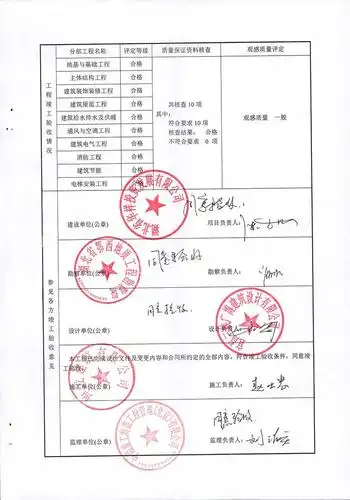 分部工程名称 评定等级 质量保证资料核查 观感质量评定
工程竣工验收情况
地基与基础工程 合格
主体结构工程 合格
建筑装饰装修工程 合格
建筑屋面工程 合格
建筑给水排水及供暖 合格
通风与空调工程 合格
建筑电气工程 合格
消防工程 合格
建筑节能 合格
电梯安装工程 合格
共核查 10 项
其中:
符合要求 10 项
核查结果: 合格
不符合要求 0 项
观感质量 一般
参见各方竣工验收意见
同意验收
建设单位(公章) 项目负责人:
同意验收
勘察单位(公章) 勘察负责人:
同意验收
设计单位(公章) 设计负责人:
本工程已完成设计文件及变更内容和合同所约定的全部内容,符合竣工验收条件,同意竣工验收。
施工单位(公章) 施工负责人:
同意验收
监理单位(公章) 监理负责人: